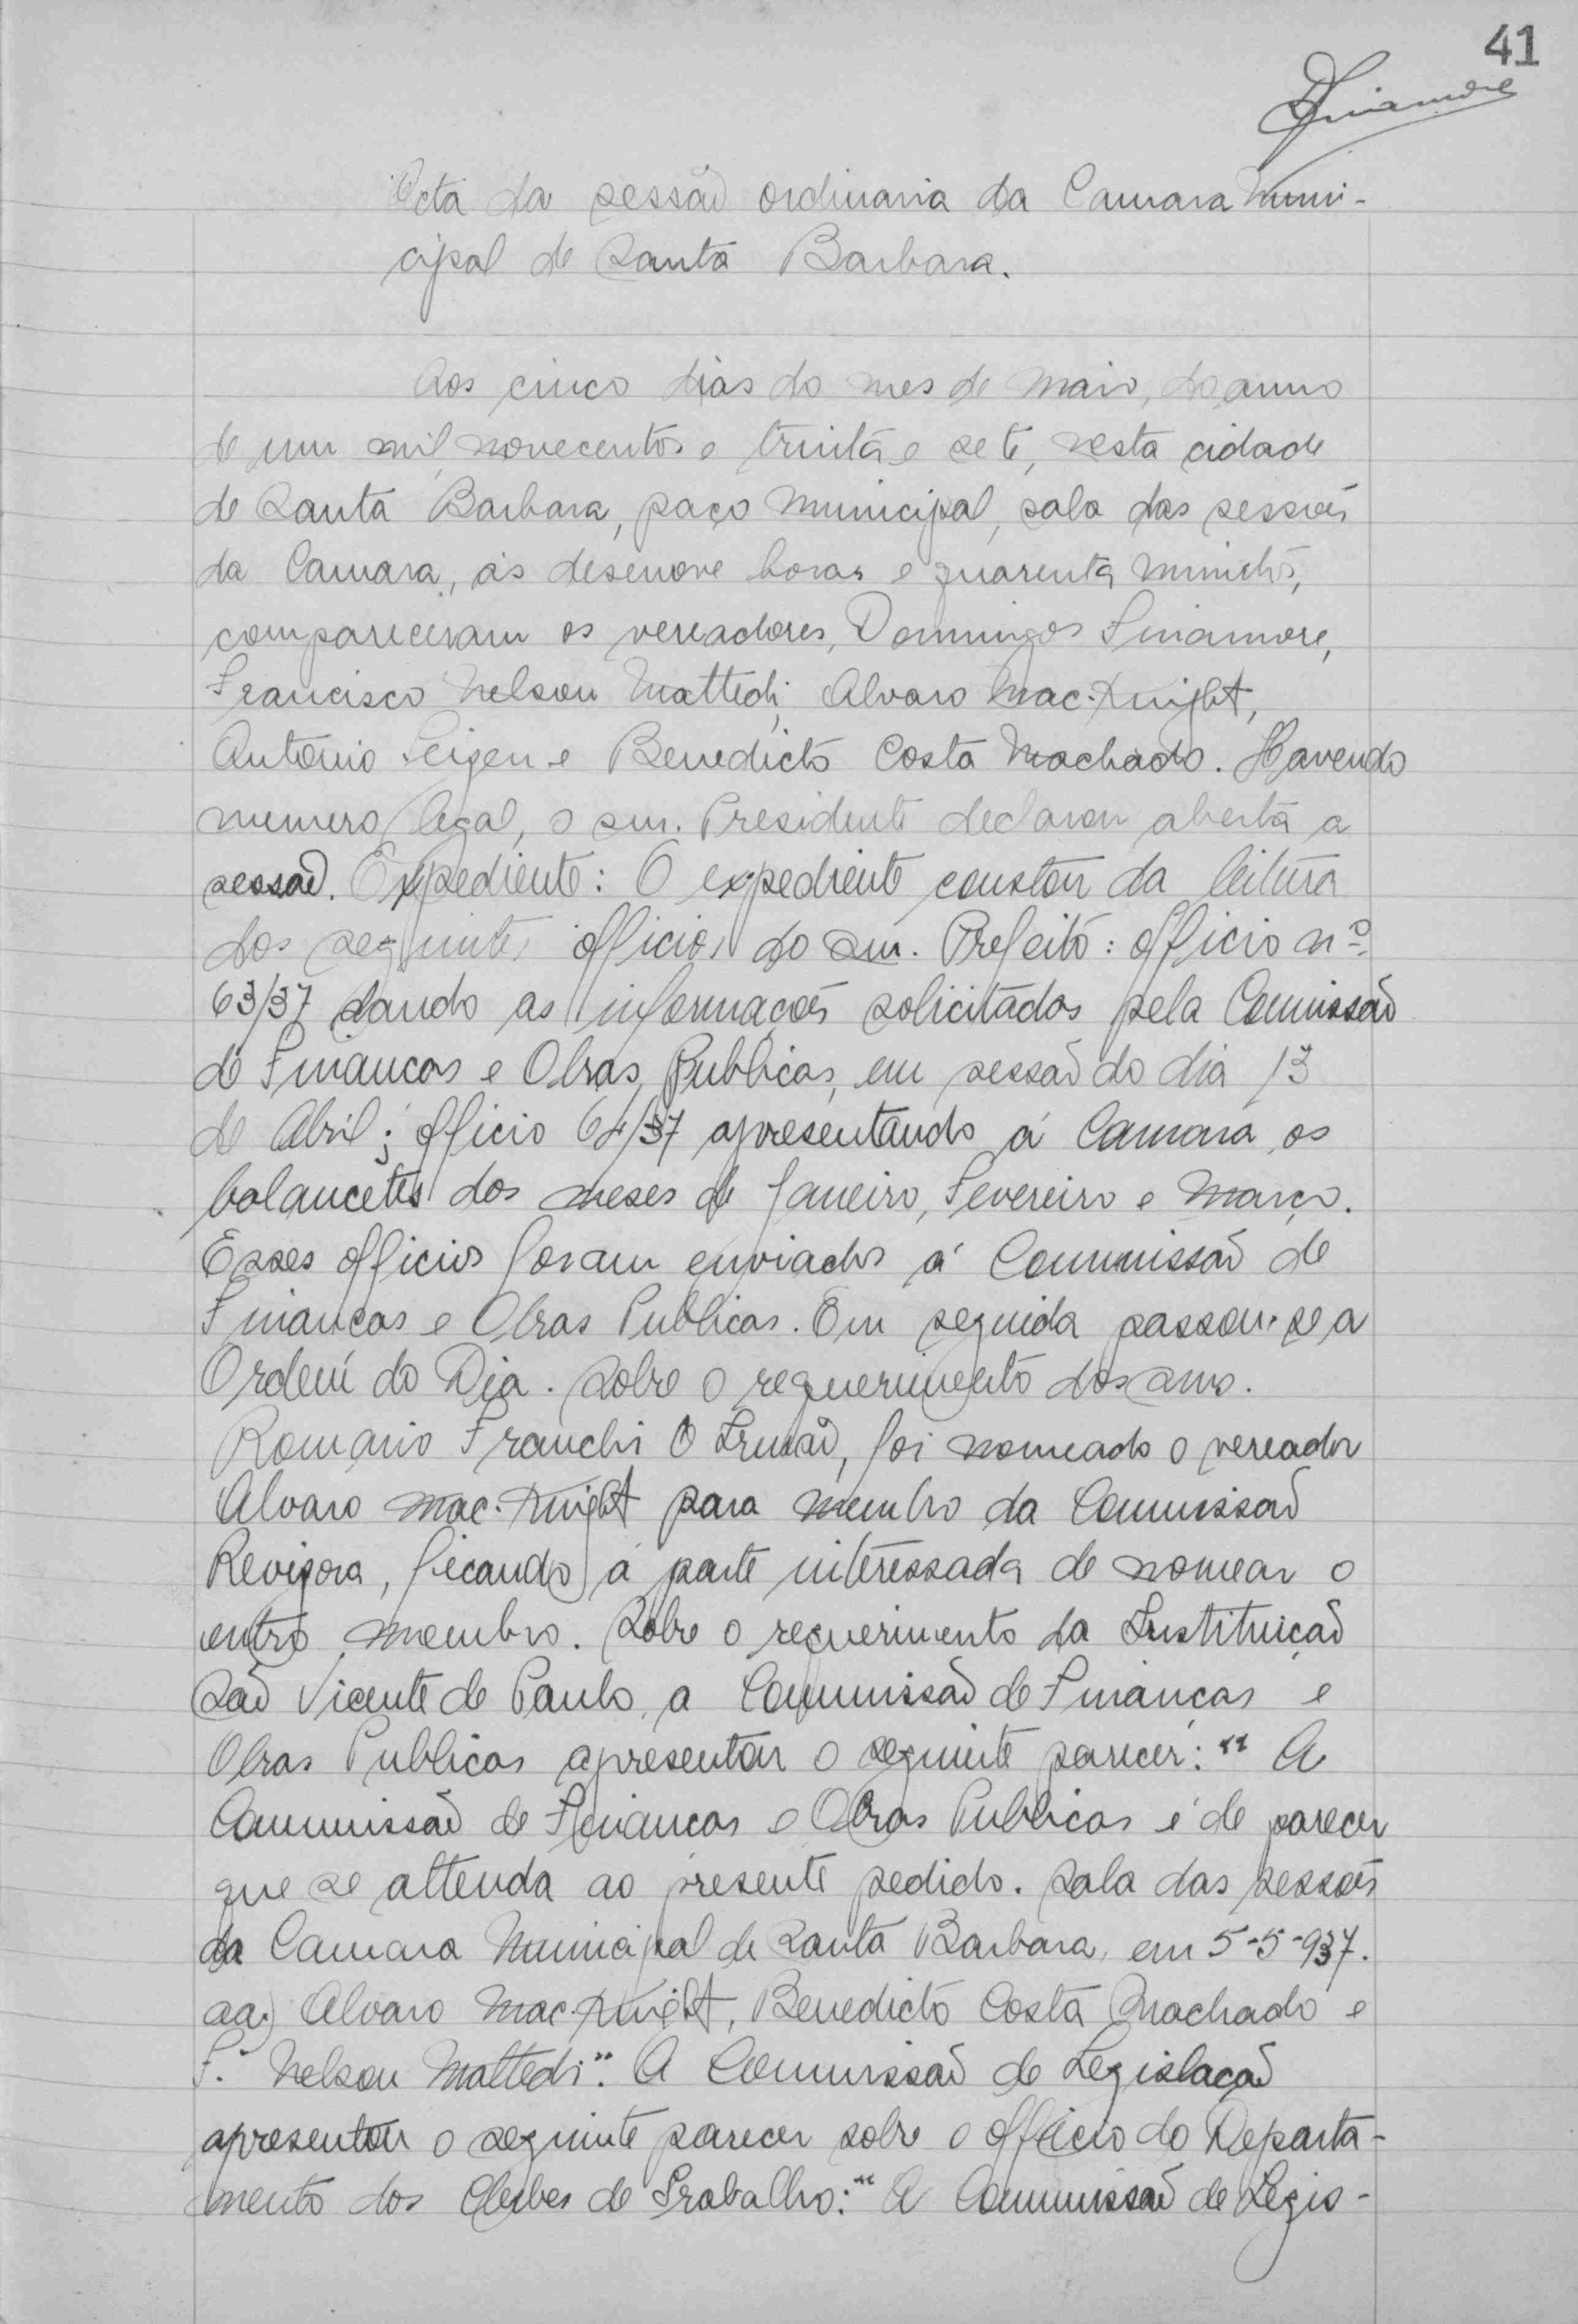 41
Finamore
Acta da sessão ordinaria da Camara Muni-
cipal de Santa Barbara.
Aos cinco dias do mes de Maio, do anno
de um mil novecentos e trinta e sete, nesta cidade
de Santa Barbara, paço Municipal, sala das sessões
da Camara, ás desenove horas e quarenta minutos,
compareceram os vereadores, Domingos Finamore,
Francisco Nelson Mattedi, Alvaro Mac-Knight,
Antonio e Benedicto Costa Machado. Havendo
numero legal, o snr. Presidente declarou aberta a
sessão. Expediente: O expediente constou da leitura
dos seguintes officios do snr. Prefeito: officio nº
63/37 dando as informações solicitadas pela Comissão
de Financas e Obras Publicas, em sessão do dia 13
de Abril; officio 64/37 apresentando á Camara os
balancetes dos meses de Janeiro, Fevereiro e Março.
Esses officios foram enviados á Commissão de
Financas e Obras Publicas. Em seguida passou-se a
Ordem do Dia. Sobre o requerimento dos snrs.
Romano Franchi & Irmão, foi nomeado o vereador
Alvaro Mac-Knight para membro da Commissão
Revisora, ficando á parte interessada de nomear o
outro membro. Sobre o requerimento da Instituição
São Vicente de Paulo, a Commissão de Finanças e
Obras Publicas apresentou o seguinte parecer: "A
Commissão de Financas e Obras Publicas é de parecer
que se attenda ao presente pedido. Sala das sessões
da Camara Municipal de Santa Barbara, em 5-5-937.
aa.) Alvaro Mac-Knight, Benedicto Costa Machado e
F. Nelson Mattedi". A Commissão de Legislação
apresentou o seguinte parecer sobre o officio do Departa-
mento dos Clubes de Trabalho: "A Commissão de Legis-